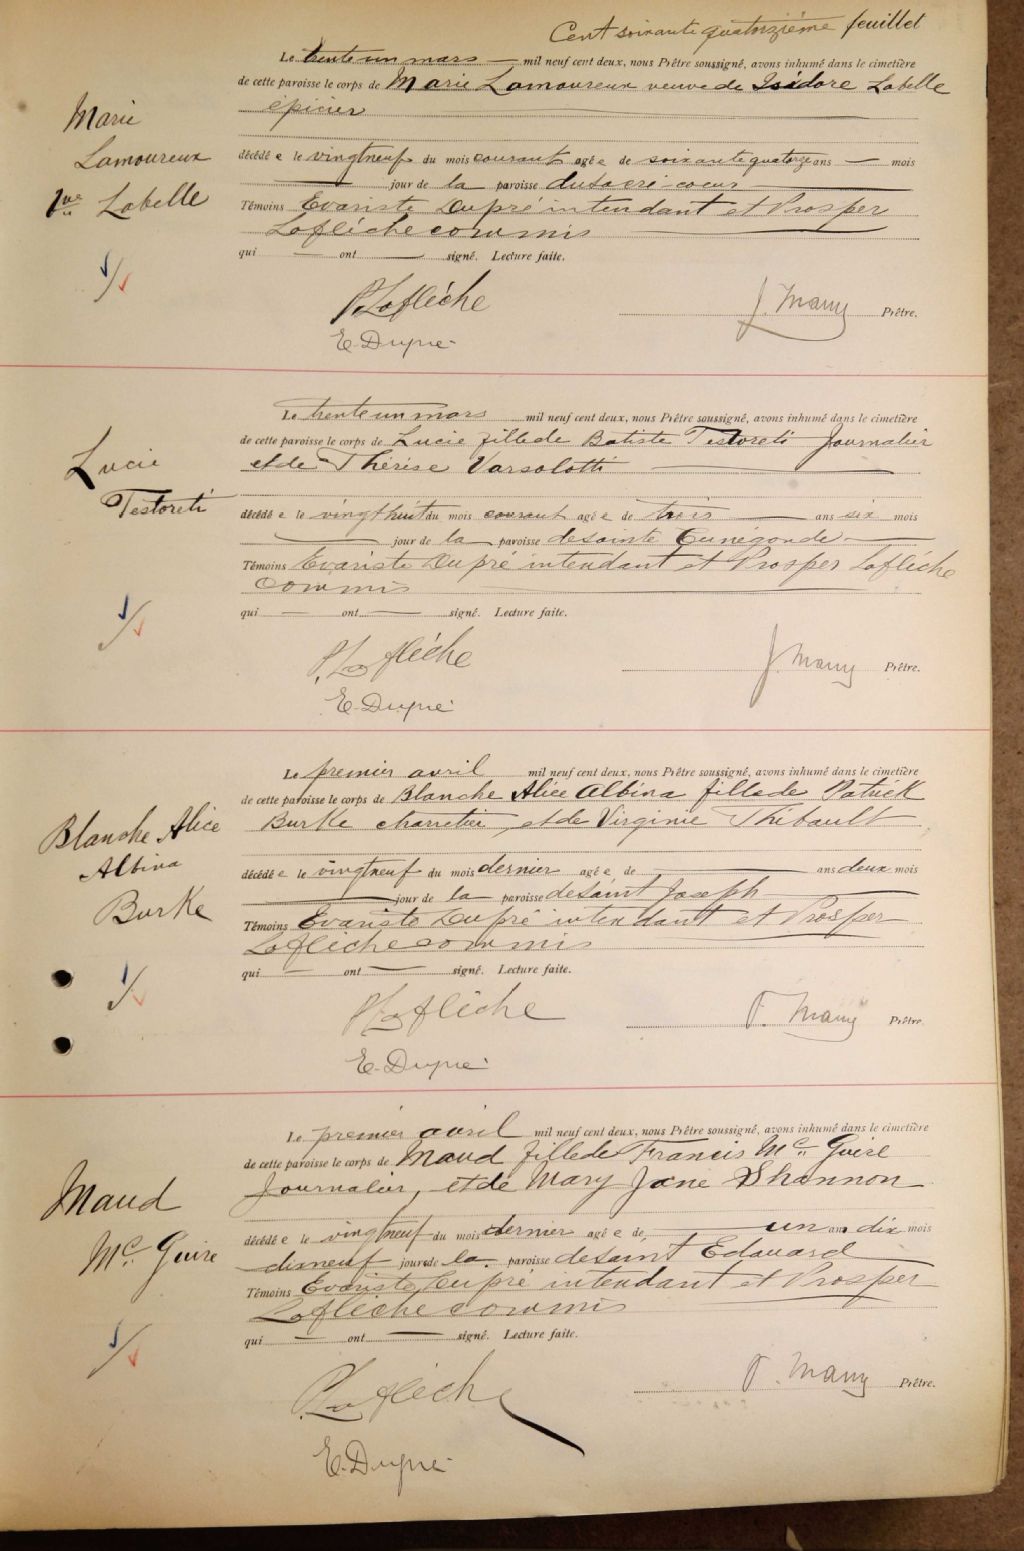 Cent soixante quatorzième feuillet
Le trente un mars — mil neuf cent deux, nous Prêtre soussigné, avons inhumé dans le cimetière
de cette paroisse le corps de Marie Lamoureux veuve de Isidore Labelle
épicier
Marie
Lamoureux
Vve Labelle
décédée le vingt neuf du mois courant agée de soixante quatorze ans — mois
— jour de la paroisse du Sacré coeur
Témoins Evariste Dupré intendant et Prosper
Laflèche commis
qui — ont — signé. Lecture faite.
P. Laflèche
J. Many Prêtre.
E. Dupré
Le trente un mars mil neuf cent deux, nous Prêtre soussigné, avons inhumé dans le cimetière
de cette paroisse le corps de Lucie fille de Batiste Testoreti Journalier
et de Thérèse Varsolotti
Lucie
Testoreti
décédée le vingt huit du mois courant agée de trois — ans six mois
— jour de la paroisse de sainte Cunégonde —
Témoins Evariste Dupré intendant et Prosper Laflèche
commis
qui — ont — signé. Lecture faite.
P. Laflèche
J. Many Prêtre.
E. Dupré
Le premier avril mil neuf cent deux, nous Prêtre soussigné, avons inhumé dans le cimetière
de cette paroisse le corps de Blanche Alice Albina fille de Patrick
Burke charretier, et de Virginie Thibault
Blanche Alice
Albina
Burke
décédée le vingt neuf du mois dernier agée de — ans deux mois
— jour de la paroisse de saint Joseph
Témoins Evariste Dupré intendant et Prosper
Laflèche commis
qui — ont — signé. Lecture faite.
P. Laflèche
J. Many Prêtre.
E. Dupré
Le premier avril mil neuf cent deux, nous Prêtre soussigné, avons inhumé dans le cimetière
de cette paroisse le corps de Maud fille de Francis Mc Guire
Journalier, et de Mary Jane Shannon
Maud
Mc Guire
décédée le vingt neuf du mois dernier agée de — un an dix mois
dixneuf jours de la paroisse de saint Edouard
Témoins Evariste Dupré intendant et Prosper
Laflèche commis
qui — ont — signé. Lecture faite.
P. Laflèche
J. Many Prêtre.
E. Dupré